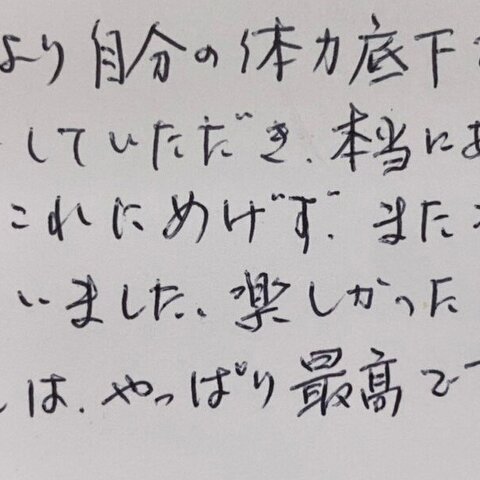 より自分の体力底下
していただき、本当に
これにめげず、また
いました、楽しかった
は、やっぱり最高で